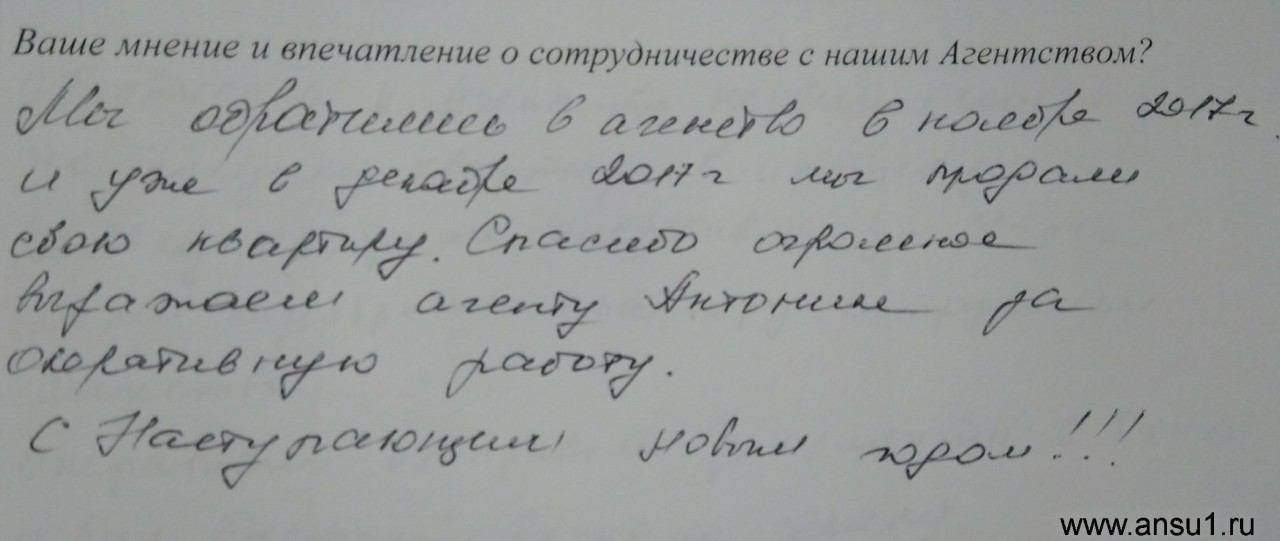 Ваше мнение и впечатление о сотрудничестве с нашим Агентством?
Мы обратились в агенство в ноябре 2017г
и уже в декабре 2017г мы продали
свою квартиру. Спасибо огромное
выражаем агенту Антонине за
оперативную работу.
С Наступающим новым годом!!!
www.ansu1.ru